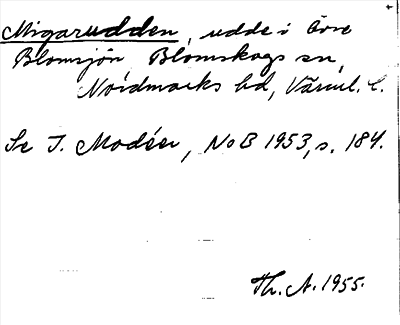 Migarudden, udde i Övre
Blomsjön, Blomskogs sn,
Nordmarks hd, Värml. l.
Se I. Modéer, NoB 1953, s. 184.
Th. A. 1955.